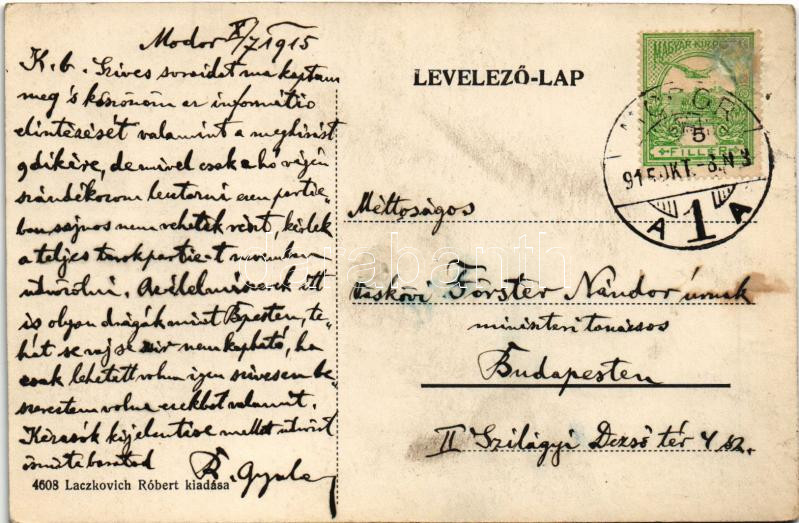 Modor X/7 1915
K. b. Szives soraidat ma kaptam
meg s köszönöm az informátio
elintézését valamint a meghivást
9dikére, de mivel csak a hó végén
szándékozom lentarni ezen partie-
ban sajnos nem vehetek részt, kérlek
a teljes tarokpartie-t nevemben
üdvözölni. Az élelmiszerek itt
is olyan drágák mint Bpesten, te-
hát se vaj se zsir nem kapható, ha
csak lehetett volna igen szivesen be-
szereztem volna ezekből valamit.
Kézcsók kijelentése mellett üdvözöl
őszinte barátod
R. Gyula
4608 Laczkovich Róbert kiadása
LEVELEZŐ-LAP
MAGYAR KIR. POSTA
5
FILLÉR
915 OKT. 8. N 3
A 1 A
Méltóságos
Förster Nándor úrnak
miniszteri tanácsos
Budapesten
II Szilágyi Dezső tér 4 sz.
Darabanth